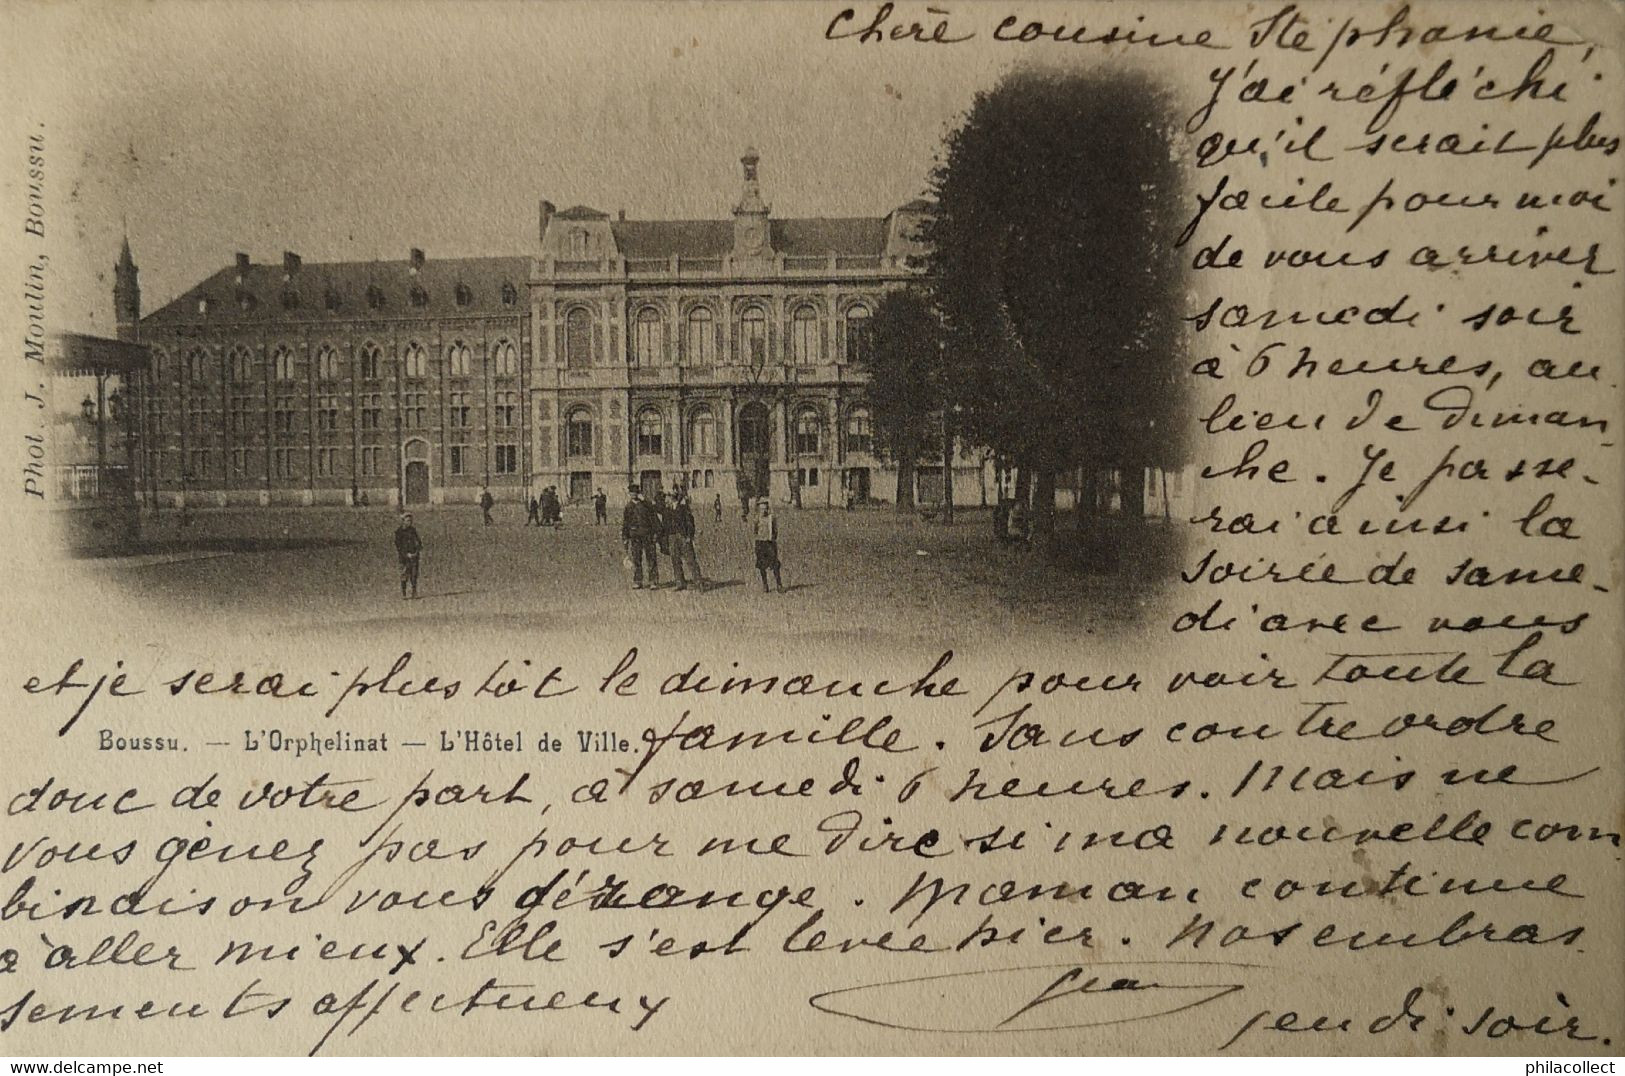 Chère cousine Stéphanie,
J'ai réfléchi
qu'il serait plus
facile pour moi
de vous arriver
samedi soir
à 6 heures, au
lieu de diman-
che. Je passe-
rai ainsi la
soirée de same-
di avec vous
et je serai plus tôt le dimanche pour voir toute la
famille. Sans contre ordre
donc de votre part, à samedi 6 heures. Mais ne
vous gênez pas pour me dire si ma nouvelle com
binaison vous dérange. Maman continue
à aller mieux. Elle s'est levée hier. Nos embras
sements affectueux
Jean
jeudi soir.
Phot. J. Moulin, Boussu.
Boussu. — L'Orphelinat — L'Hôtel de Ville.
philacollect